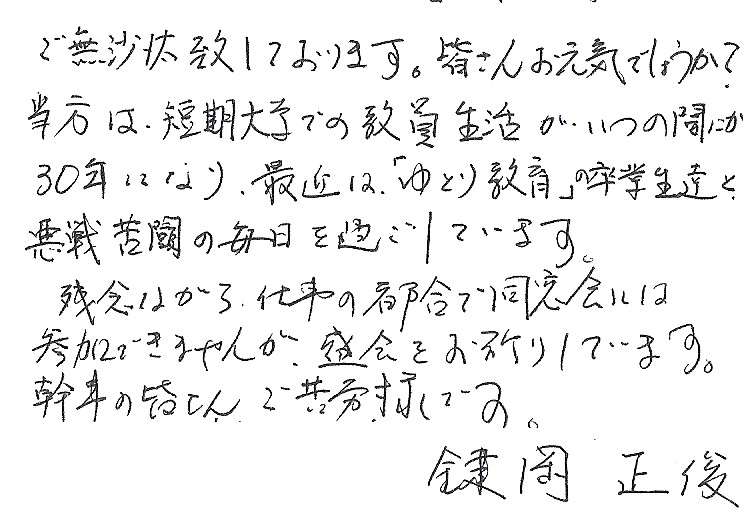 ご無沙汰致しております。皆さんお元気でしょうか？
当方は、短期大学での教員生活が、いつの間にか
30年になり、最近は、「ゆとり教育」の卒業生達と
悪戦苦闘の毎日を過ごしています。
残念ながら、仕事の都合で同窓会には
参加できませんが、盛会をお祈りしています。
幹事の皆さん、ご苦労様です。
鎌岡 正俊